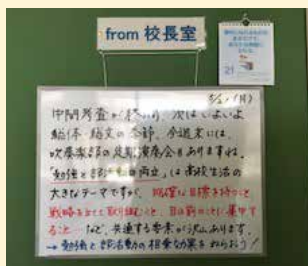 from 校長室
21
5/21(月)
中間考査が終わり、次はいよいよ
総体・総文の季節、今週末には、
吹奏楽部の定期演奏会もありますね。
「勉強と部活動の両立」は高校生活の
大きなテーマですが、明確な目標を持つこと、
戦略を立てて取り組むこと、目の前のことに集中す
ること など、共通する要素が沢山あります。
→勉強と部活動の相乗効果をねらおう!